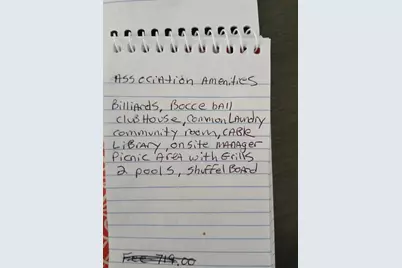 Association Amenities
Billiards, Bocce ball
clubHouse, Common Laundry
community room, CABle
Library, onsite manager
Picnic Area with Grills
2 pools, ShuffelBoard
Fee 719.00